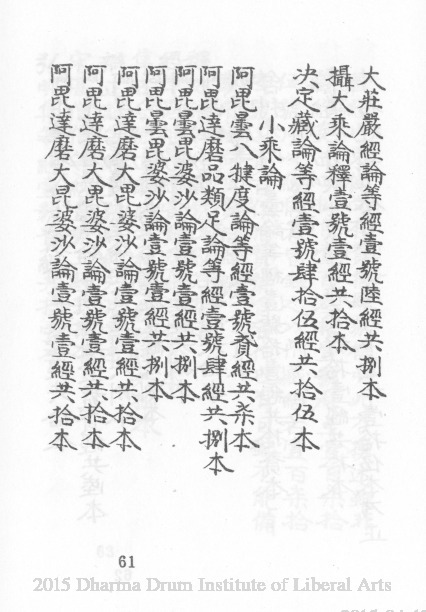 大莊嚴經論等經壹號陸經共捌本
攝大乘論釋壹號壹經共拾本
决定藏論等經壹號肆拾伍經共拾伍本
小乘論
阿毘曇八揵度論等經壹號貳經共柒本
阿毘達磨品類足論等經壹號肆經共捌本
阿毘曇毘婆沙論壹號壹經共捌本
阿毘曇毘婆沙論壹號壹經共捌本
阿毘達磨大毘婆沙論壹號壹經共拾本
阿毘達磨大毘婆沙論壹號壹經共拾本
阿毘達磨大毘婆沙論壹號壹經共拾本
61
2015 Dharma Drum Institute of Liberal Arts